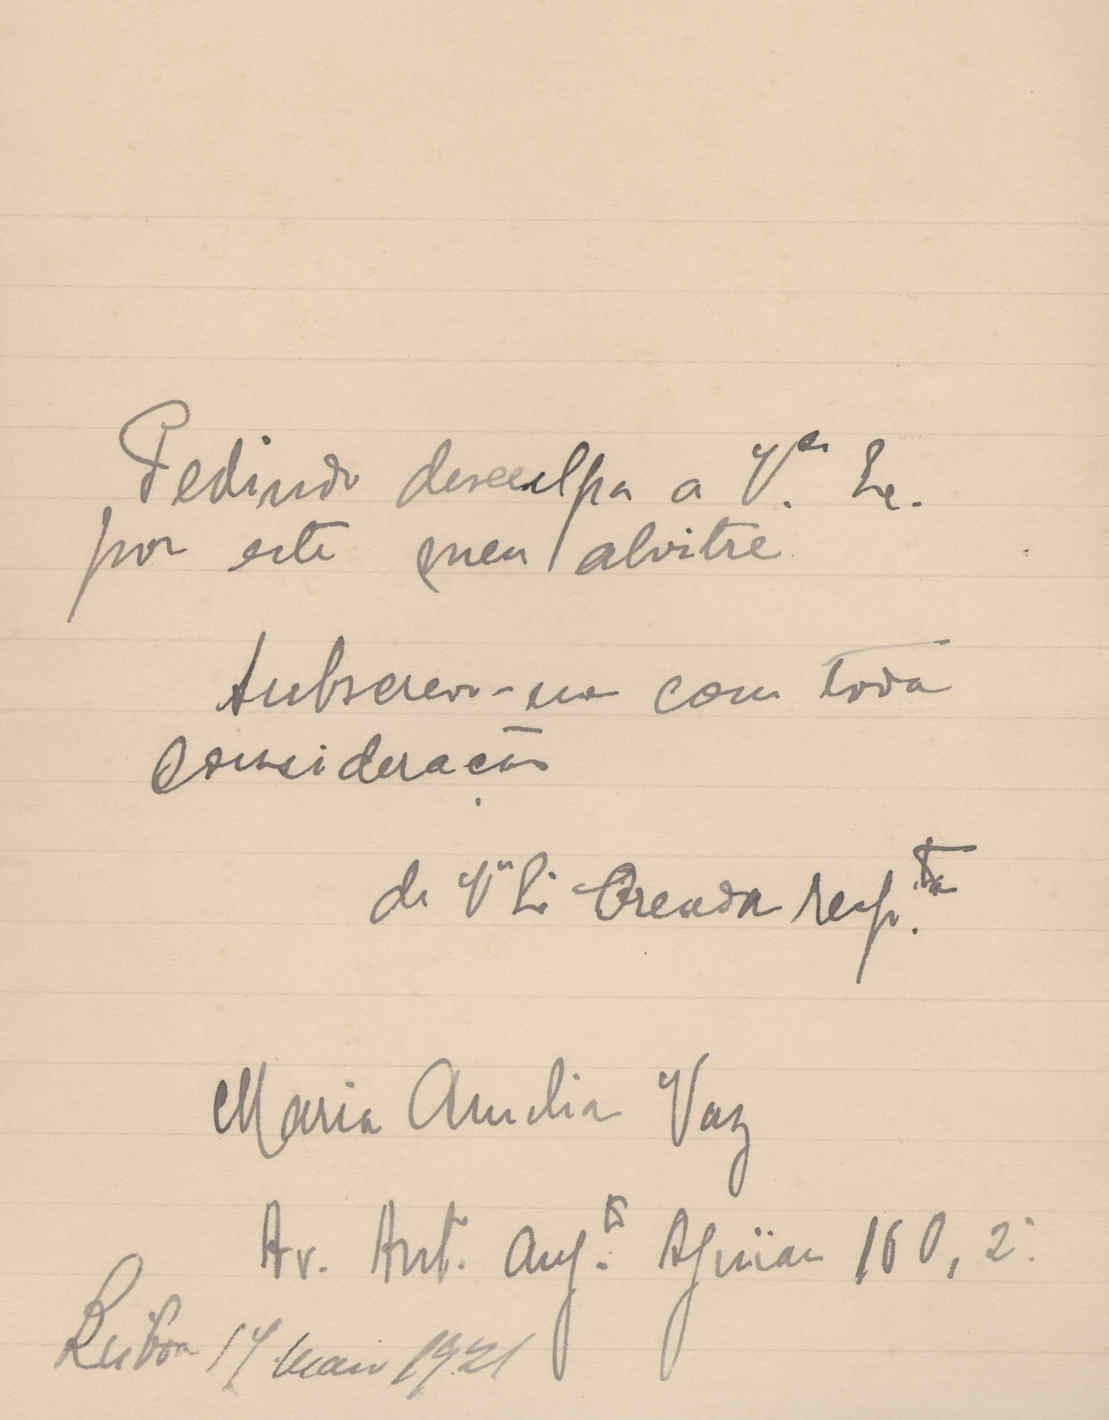 Pedindo desculpa a V.ª Ex.
por este meu alvitre
Subscrevo-me com toda
consideração
de Vª Ex Creada resp.ta
Maria Amelia Vaz
Av. Antº. Aug.to Aguiar 160, 2º.
Lisboa 17 Maio 1921